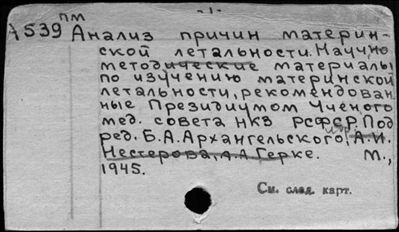 -1-
пм
А539 Анализ причин материн-
ской летальности. Научно
методические материалы
по изучению материнской
летальности, рекомендован
ные Президиумом Ученого
мед. совета НКЗ РСФСР. Под
ред. Б.А. Архангельского, А.И.
Нестерова, А.А. Герке. М.,
1945.
См. след. карт.